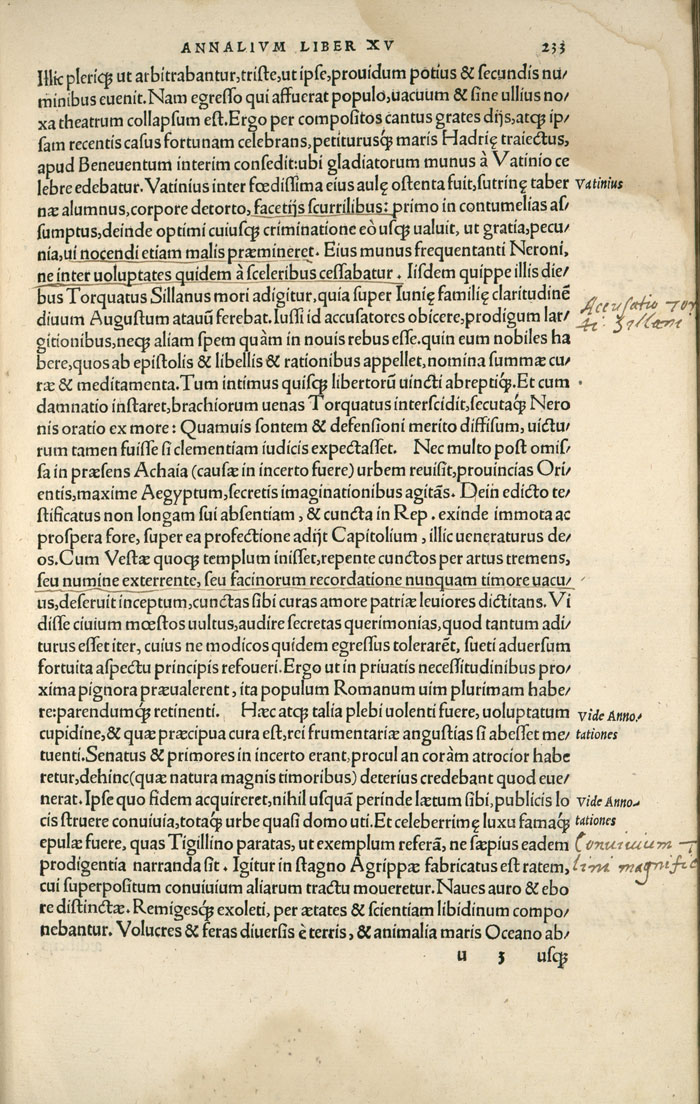 ANNALIVM LIBER XV 233
Illic pleriq́; ut arbitrabantur,triste,ut ipse,prouidum potius & secundis nu/
minibus euenit.Nam egresso qui affuerat populo,uacuum & sine ullius no/
xa theatrum collapsum est.Ergo per compositos cantus grates dijs,atq; ip/
sam recentis casus fortunam celebrans,petiturusq́; maris Hadrię traiectus,
apud Beneuentum interim consedit:ubi gladiatorum munus à Vatinio ce
lebre edebatur.Vatinius inter fœdissima eius aulę ostenta fuit,sutrinę taber
Vatinius
næ alumnus,corpore detorto, facetijs scurrilibus: primo in contumelias as/
sumptus,deinde optimi cuiusq; criminatione eò usq; ualuit, ut gratia,pecu/
nia,ui nocendi etiam malis præmineret. Eius munus frequentanti Neroni,
ne inter uoluptates quidem à sceleribus cessabatur. Iisdem quippe illis die/
bus Torquatus Sillanus mori adigitur,quia super Iunię familię claritudinē
Accusatio Tor
ti Sillani
diuum Augustum atauū ferebat.Iussi id accusatores obicere,prodigum lar/
gitionibus,neq; aliam spem quàm in nouis rebus esse.quin eum nobiles ha
bere,quos ab epistolis & libellis & rationibus appellet,nomina summæ cu/
ræ & meditamenta.Tum intimus quisq; libertorū uincti abreptiq́;.Et cum
damnatio instaret,brachiorum uenas Torquatus interscidit,secutaq́; Nero
nis oratio ex more: Quamuis sontem & defensioni merito diffisum, uictu/
rum tamen fuisse si clementiam iudicis expectasset. Nec multo post omis/
sa in præsens Achaia (causæ in incerto fuere) urbem reuisit,prouincias Ori/
entis,maxime Aegyptum,secretis imaginationibus agitās. Dein edicto te/
stificatus non longam sui absentiam, & cuncta in Rep. exinde immota ac
prospera fore, super ea profectione adijt Capitolium, illic ueneraturus de/
os.Cum Vestæ quoq; templum inisset,repente cunctos per artus tremens,
seu numine exterrente, seu facinorum recordatione nunquam timore uacu/
us,deseruit inceptum,cunctas sibi curas amore patriæ leuiores dictitans. Vi
disse ciuium mœstos uultus,audire secretas querimonias,quod tantum adi/
turus esset iter, cuius ne modicos quidem egressus tolerarēt, sueti aduersum
fortuita aspectu principis refoueri.Ergo ut in priuatis necessitudinibus pro/
xima pignora præualerent, ita populum Romanum uim plurimam habe/
re:parendumq́; retinenti. Hæc atq; talia plebi uolenti fuere, uoluptatum
Vide Anno/
tationes
cupidine,& quæ præcipua cura est,rei frumentariæ angustias si abesset me/
tuenti.Senatus & primores in incerto erant,procul an coràm atrocior habe
retur,dehinc(quæ natura magnis timoribus) deterius credebant quod eue/
nerat.Ipse quo fidem acquireret,nihil usquā perinde lætum sibi,publicis lo
Vide Anno/
tationes
cis struere conuiuia,totaq́; urbe quasi domo uti.Et celeberrimę luxu famaq́;
epulæ fuere, quas Tigillino paratas, ut exemplum referā, ne sæpius eadem
Conuiuium T
lini magnific
prodigentia narranda sit. Igitur in stagno Agrippæ fabricatus est ratem,
cui superpositum conuiuium aliarum tractu moueretur. Naues auro & ebo
re distinctæ. Remigesq́; exoleti, per ætates & scientiam libidinum compo/
nebantur. Volucres & feras diuersis è terris, & animalia maris Oceano ab/
u 3 usq;